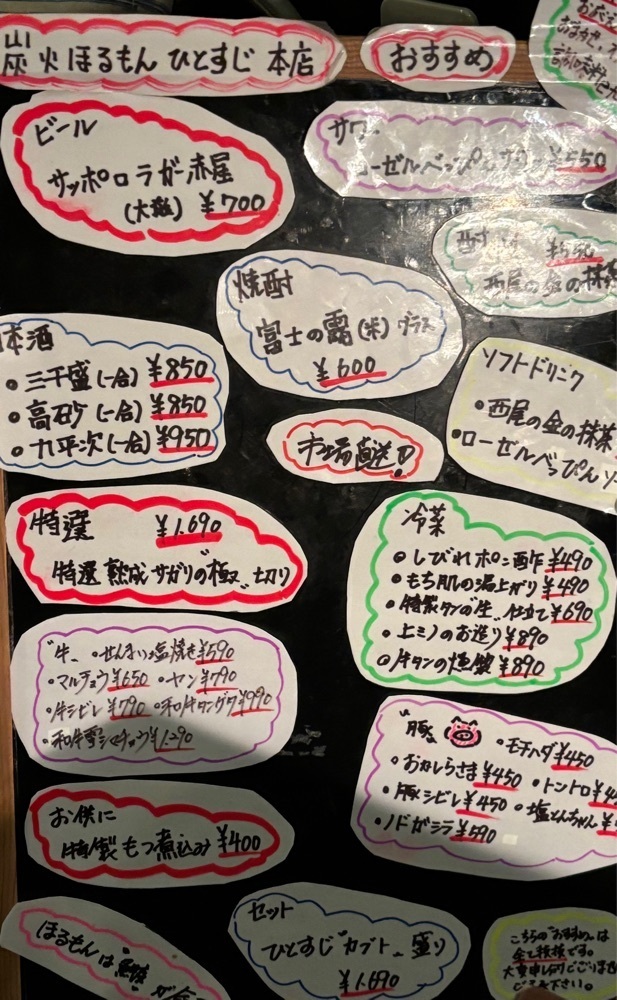 炭火ほるもん ひとすじ 本店
おすすめ
ビール
サッポロラガー赤星
(大瓶) ¥700
サワー
ローゼルべっぴんサワー ¥550
西尾の金の抹茶
焼酎
富士の露(米) グラス
¥600
本酒
・三千盛(一合) ¥850
・高砂(一合) ¥850
・九平次(一合) ¥950
ソフトドリンク
・西尾の金の抹茶
・ローゼルべっぴんソー
市場直送!
特選 ¥1.690
特選熟成サガリの"極"切り
冷菜
・しびれポン酢 ¥490
・もち肌の湯上がり ¥490
・特製タンの"生"仕立て ¥690
・上ミノのお造り ¥890
・牛タンの燻製 ¥890
"牛" ・せんまい塩焼き ¥590
・マルチョウ ¥650 ・ヤン ¥790
・牛シビレ ¥790 ・和牛タングタ ¥990
¥1.290
"豚" ・モチハダ ¥450
・おかしらさま ¥450 ・トントロ
・豚シビレ ¥450 ・塩とんちゃん
・ノドガシラ ¥590
お供に
特製もつ煮込み ¥400
ほるもんは"鮮度"が
セット
ひとすじ"カブト"盛り
¥1.690
こちらの"おすすめ"は
全て税抜です。